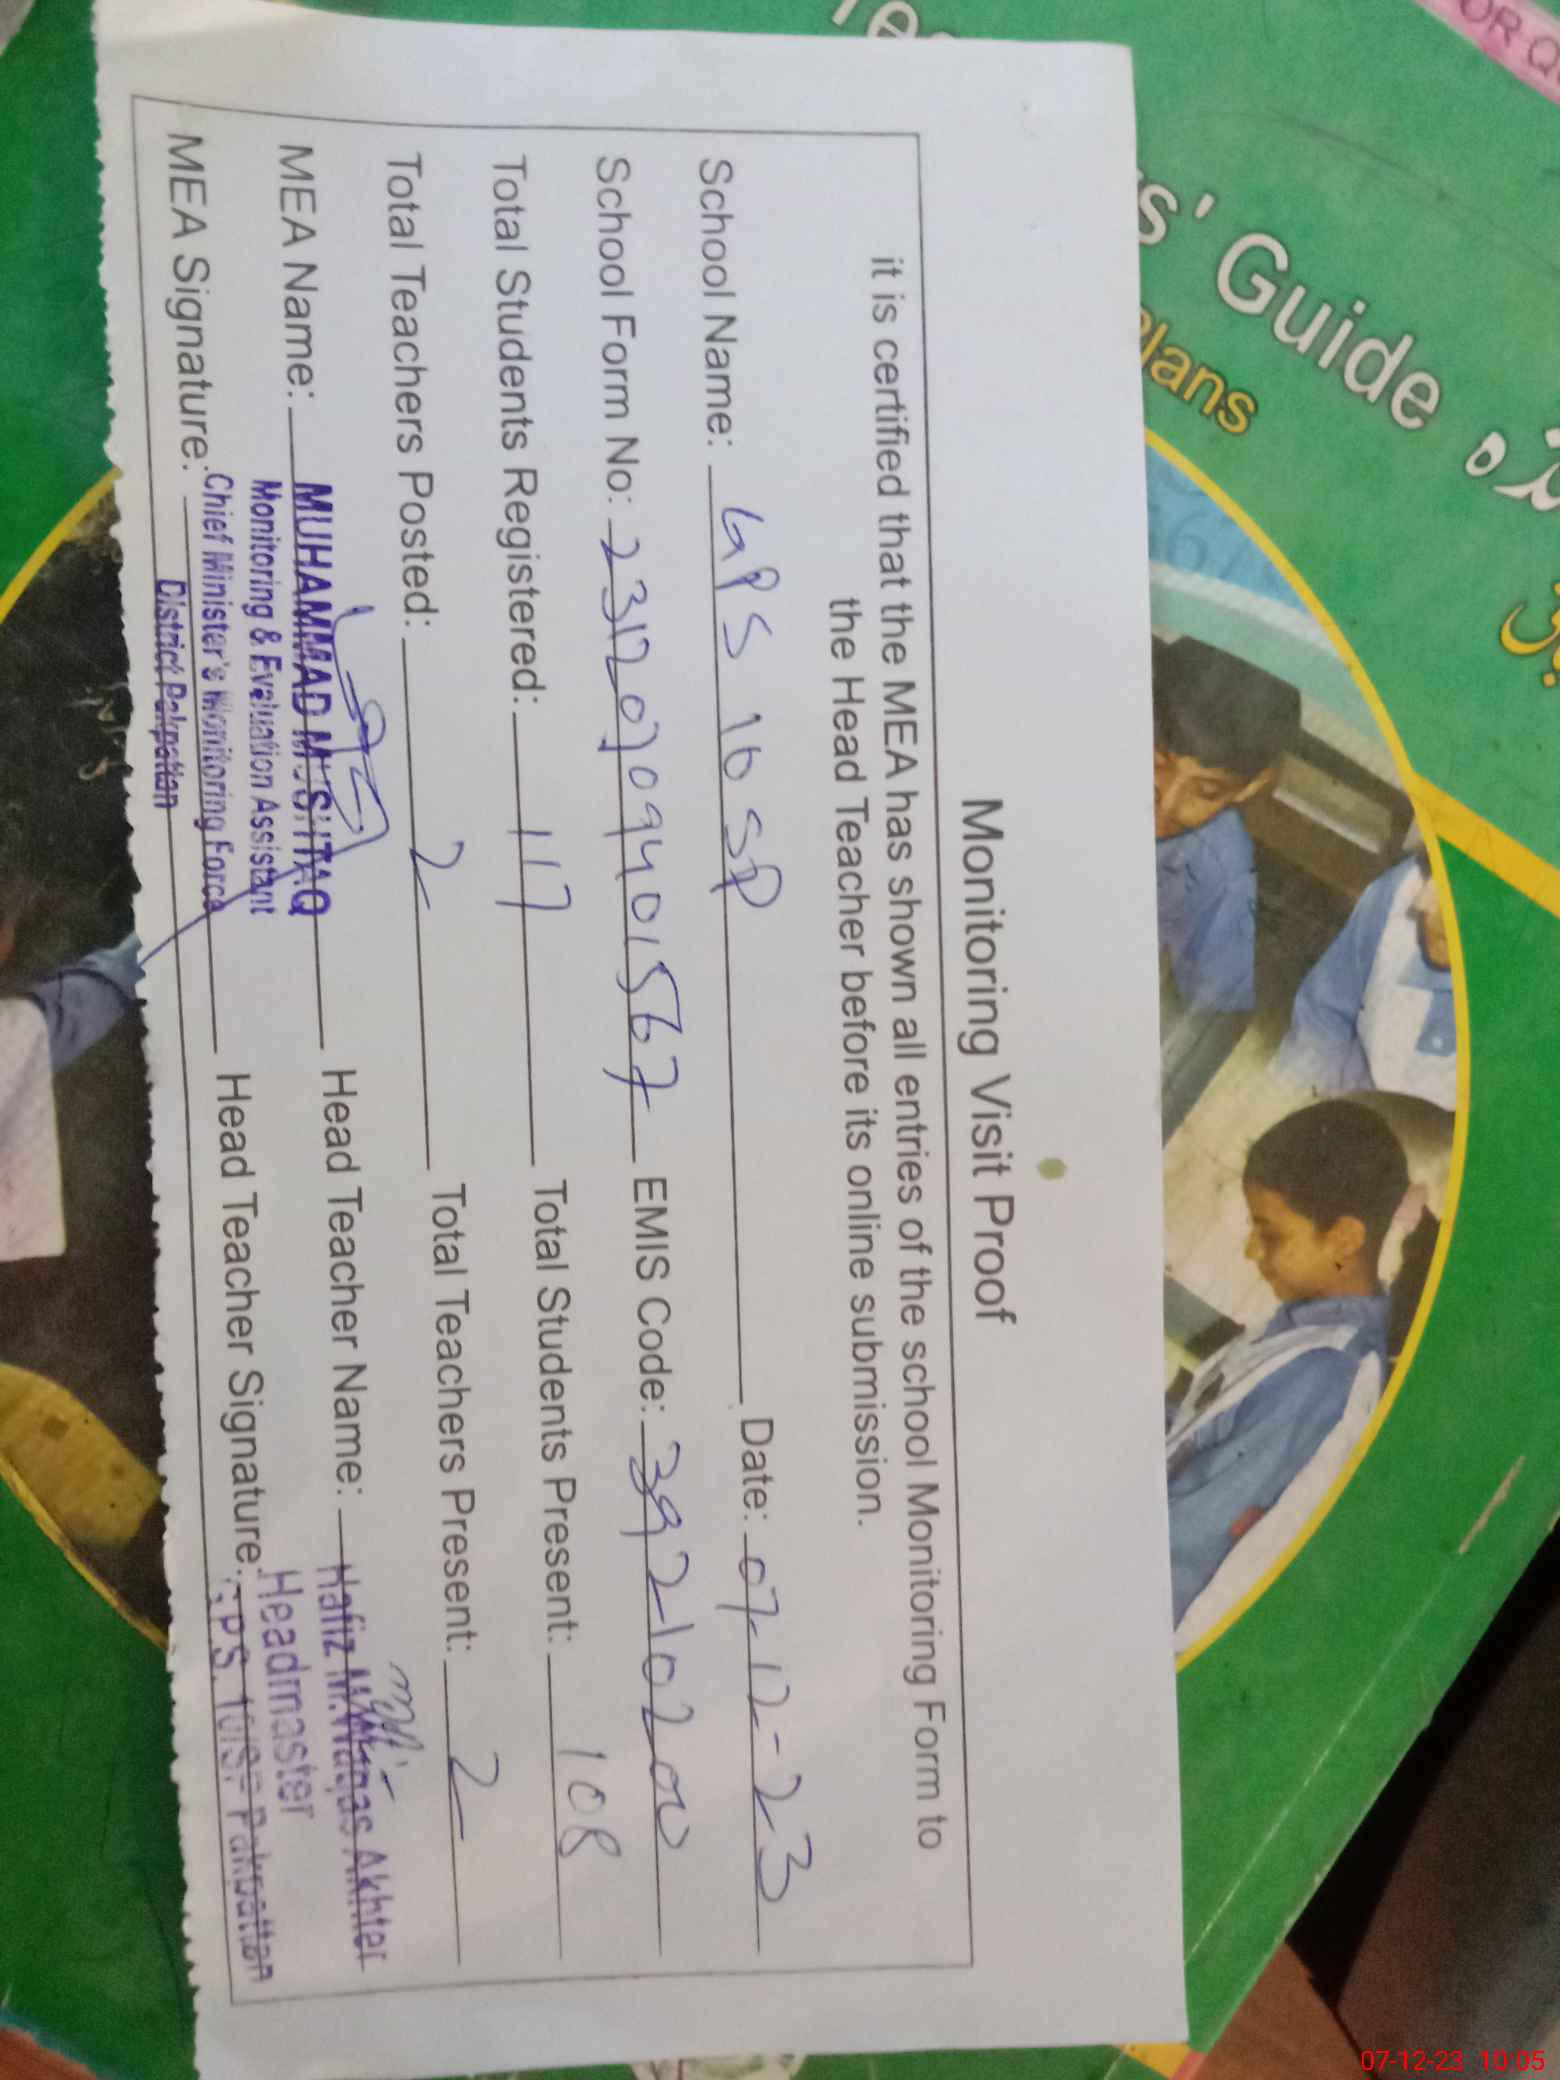 Monitoring Visit Proof
it is certified that the MEA has shown all entries of the school Monitoring Form to
the Head Teacher before its online submission.
School Name: GPS 16 SP Date: 07-12-23
School Form No: 23120709401567 EMIS Code: 39210200
Total Students Registered: 117 Total Students Present: 108
Total Teachers Posted: 2 Total Teachers Present: 2
MEA Name: MUHAMMAD MUSHTAQ Head Teacher Name: Hafiz M.Waqas Akhter
Monitoring & Evaluation Assistant Headmaster
MEA Signature: Chief Minister's Monitoring Force Head Teacher Signature: PS. Pakpattan
District Pakpattan
s' Guide
Plans
OR
07-12-23 10:05